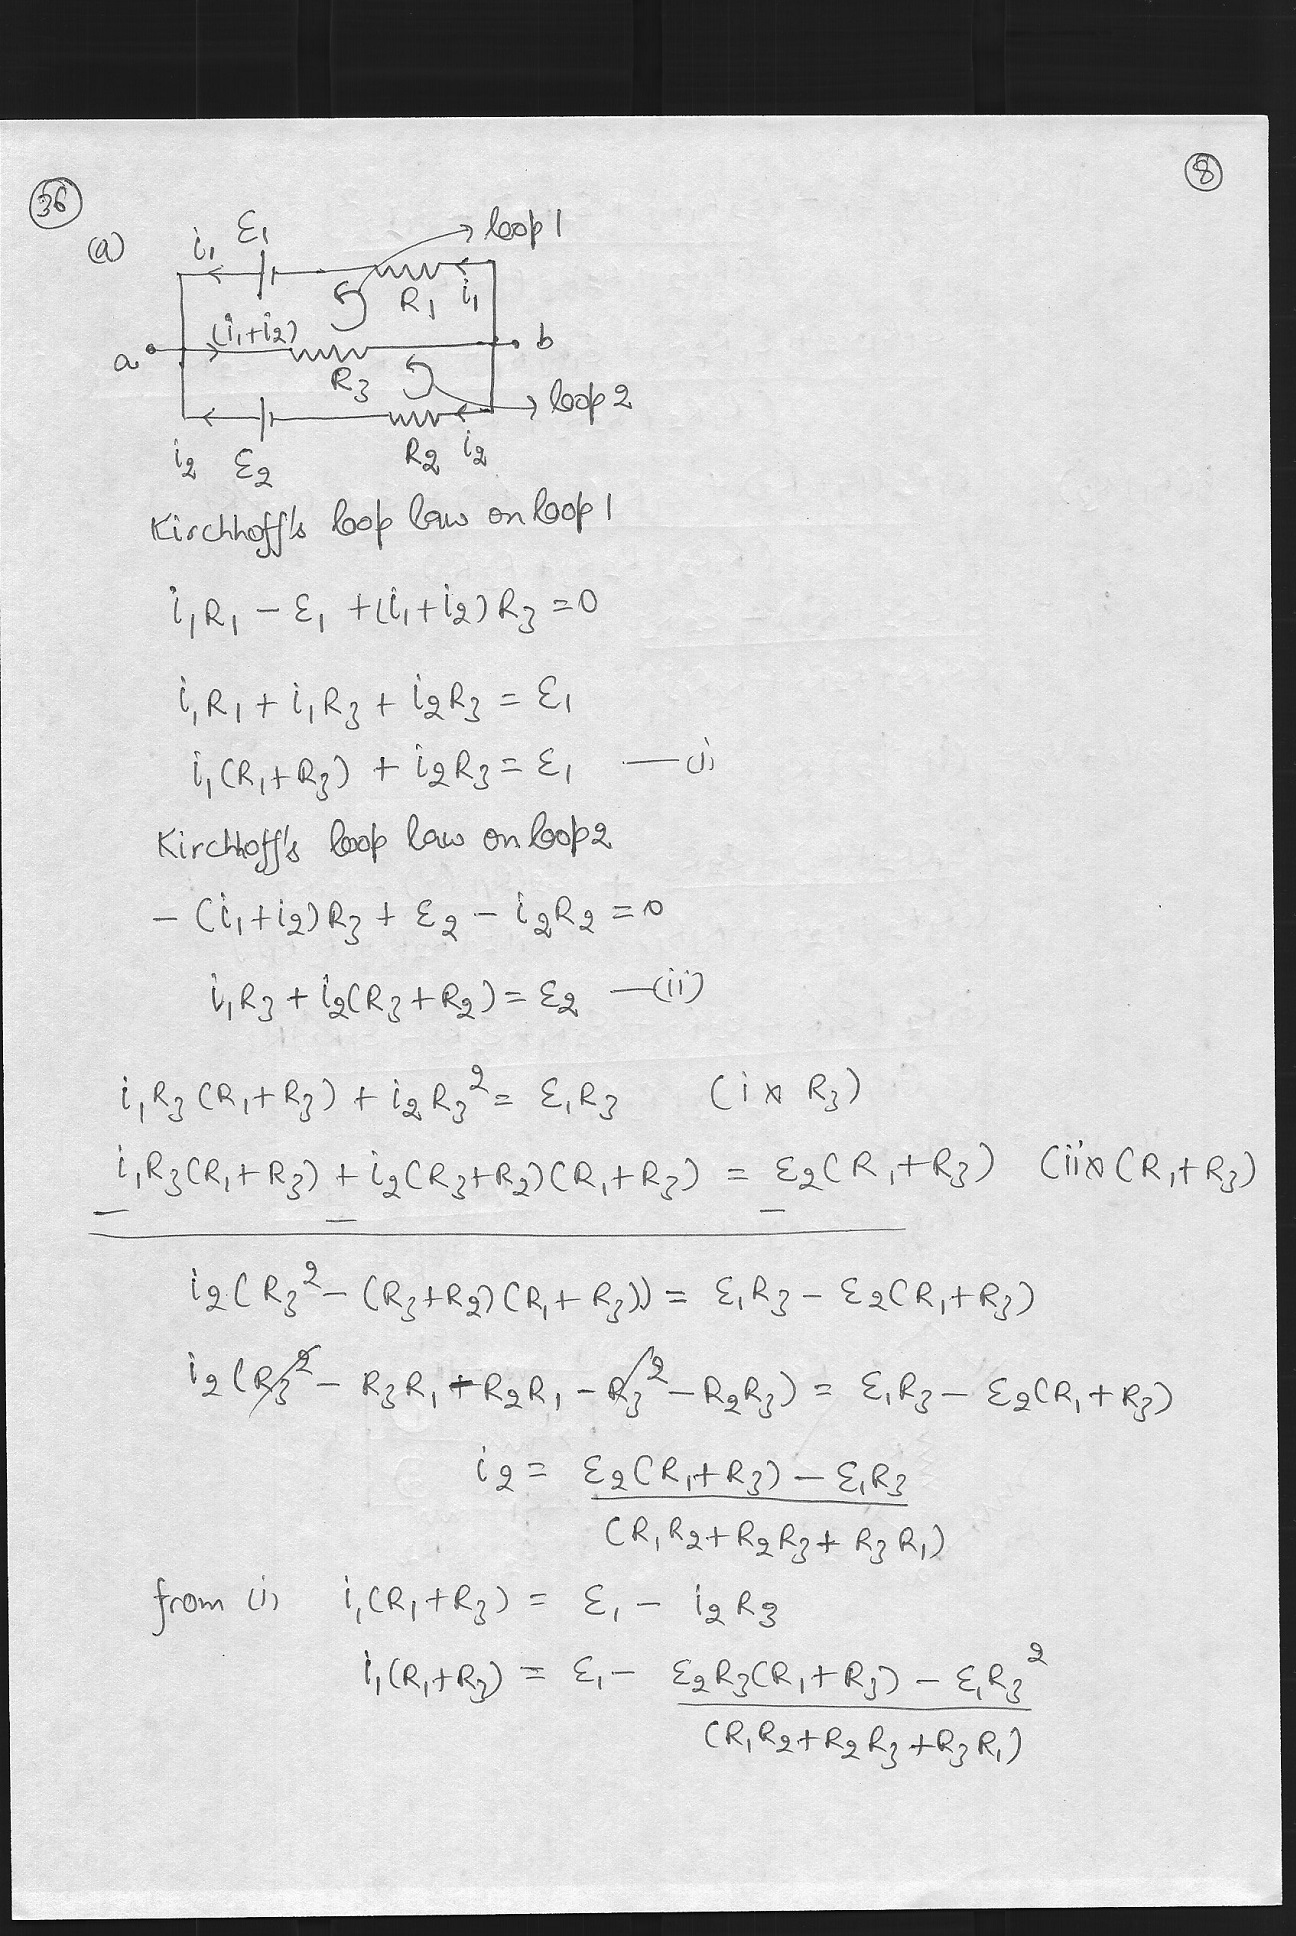 36
8
(a)
i₁ ε₁
loop 1
R₁ i₁
(i₁+i₂)
a
b
R₃
loop 2
i₂ ε₂ R₂ i₂
Kirchhoff's loop law on loop 1
i₁R₁ − ε₁ + (i₁+i₂) R₃ = 0
i₁R₁ + i₁R₃ + i₂R₃ = ε₁
i₁(R₁+R₃) + i₂R₃ = ε₁ —(i)
Kirchhoff's loop law on loop 2
− (i₁+i₂) R₃ + ε₂ − i₂R₂ = 0
i₁R₃ + i₂(R₃+R₂) = ε₂ —(ii)
i₁R₃(R₁+R₃) + i₂R₃² = ε₁R₃ (i × R₃)
i₁R₃(R₁+R₃) + i₂(R₃+R₂)(R₁+R₃) = ε₂(R₁+R₃) (ii×(R₁+R₃)
− − −
i₂(R₃² − (R₃+R₂)(R₁+R₃)) = ε₁R₃ − ε₂(R₁+R₃)
i₂(R₃² − R₃R₁ − R₂R₁ − R₃² − R₂R₃) = ε₁R₃ − ε₂(R₁+R₃)
i₂ = ε₂(R₁+R₃) − ε₁R₃
(R₁R₂+R₂R₃+R₃R₁)
from (i) i₁(R₁+R₃) = ε₁ − i₂R₃
i₁(R₁+R₃) = ε₁ − ε₂R₃(R₁+R₃) − ε₁R₃²
(R₁R₂+R₂R₃+R₃R₁)